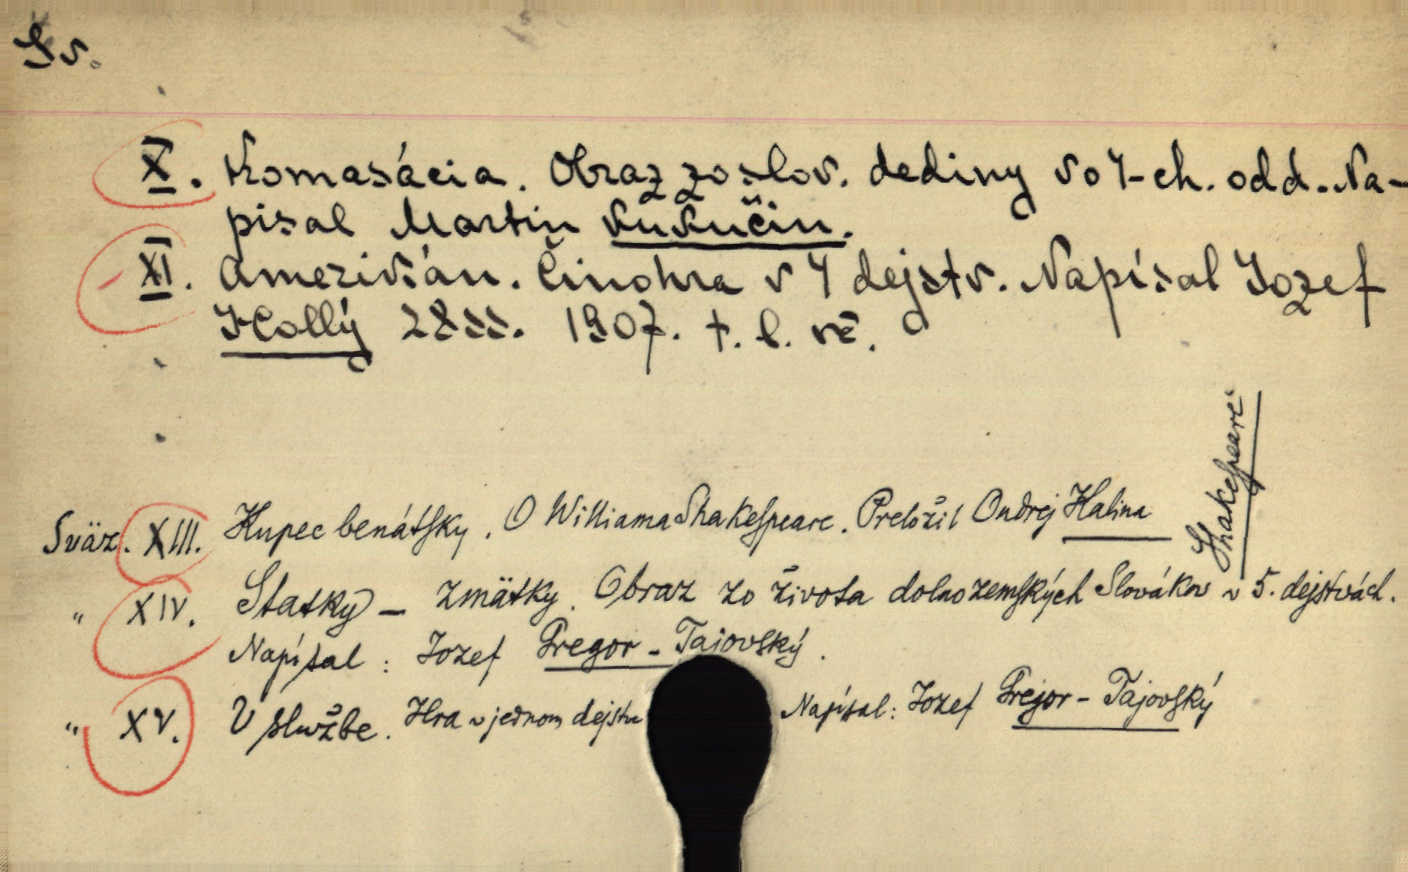 Sv.
X. Komasácia. Obraz zo slov. dediny v o 4-ch. odd. Na-
písal Martin Kukučín.
XI. Amerikán. Činohra v 4 dejstv. Napísal Jozef
Hollý 28 ss. 1907. t. l. vč.
Shakespeare
Sväz. XIII. Kupec benátsky. O Williama Shakespeare. Preložil Ondrej Halina
" XIV. Statky – zmätky. Obraz zo života dolnozemských Slovákov v 5. dejstvách.
Napísal: Jozef Gregor-Tajovský.
" XV. V službe. Hra v jednom dejstv Napísal: Jozef Gregor-Tajovský